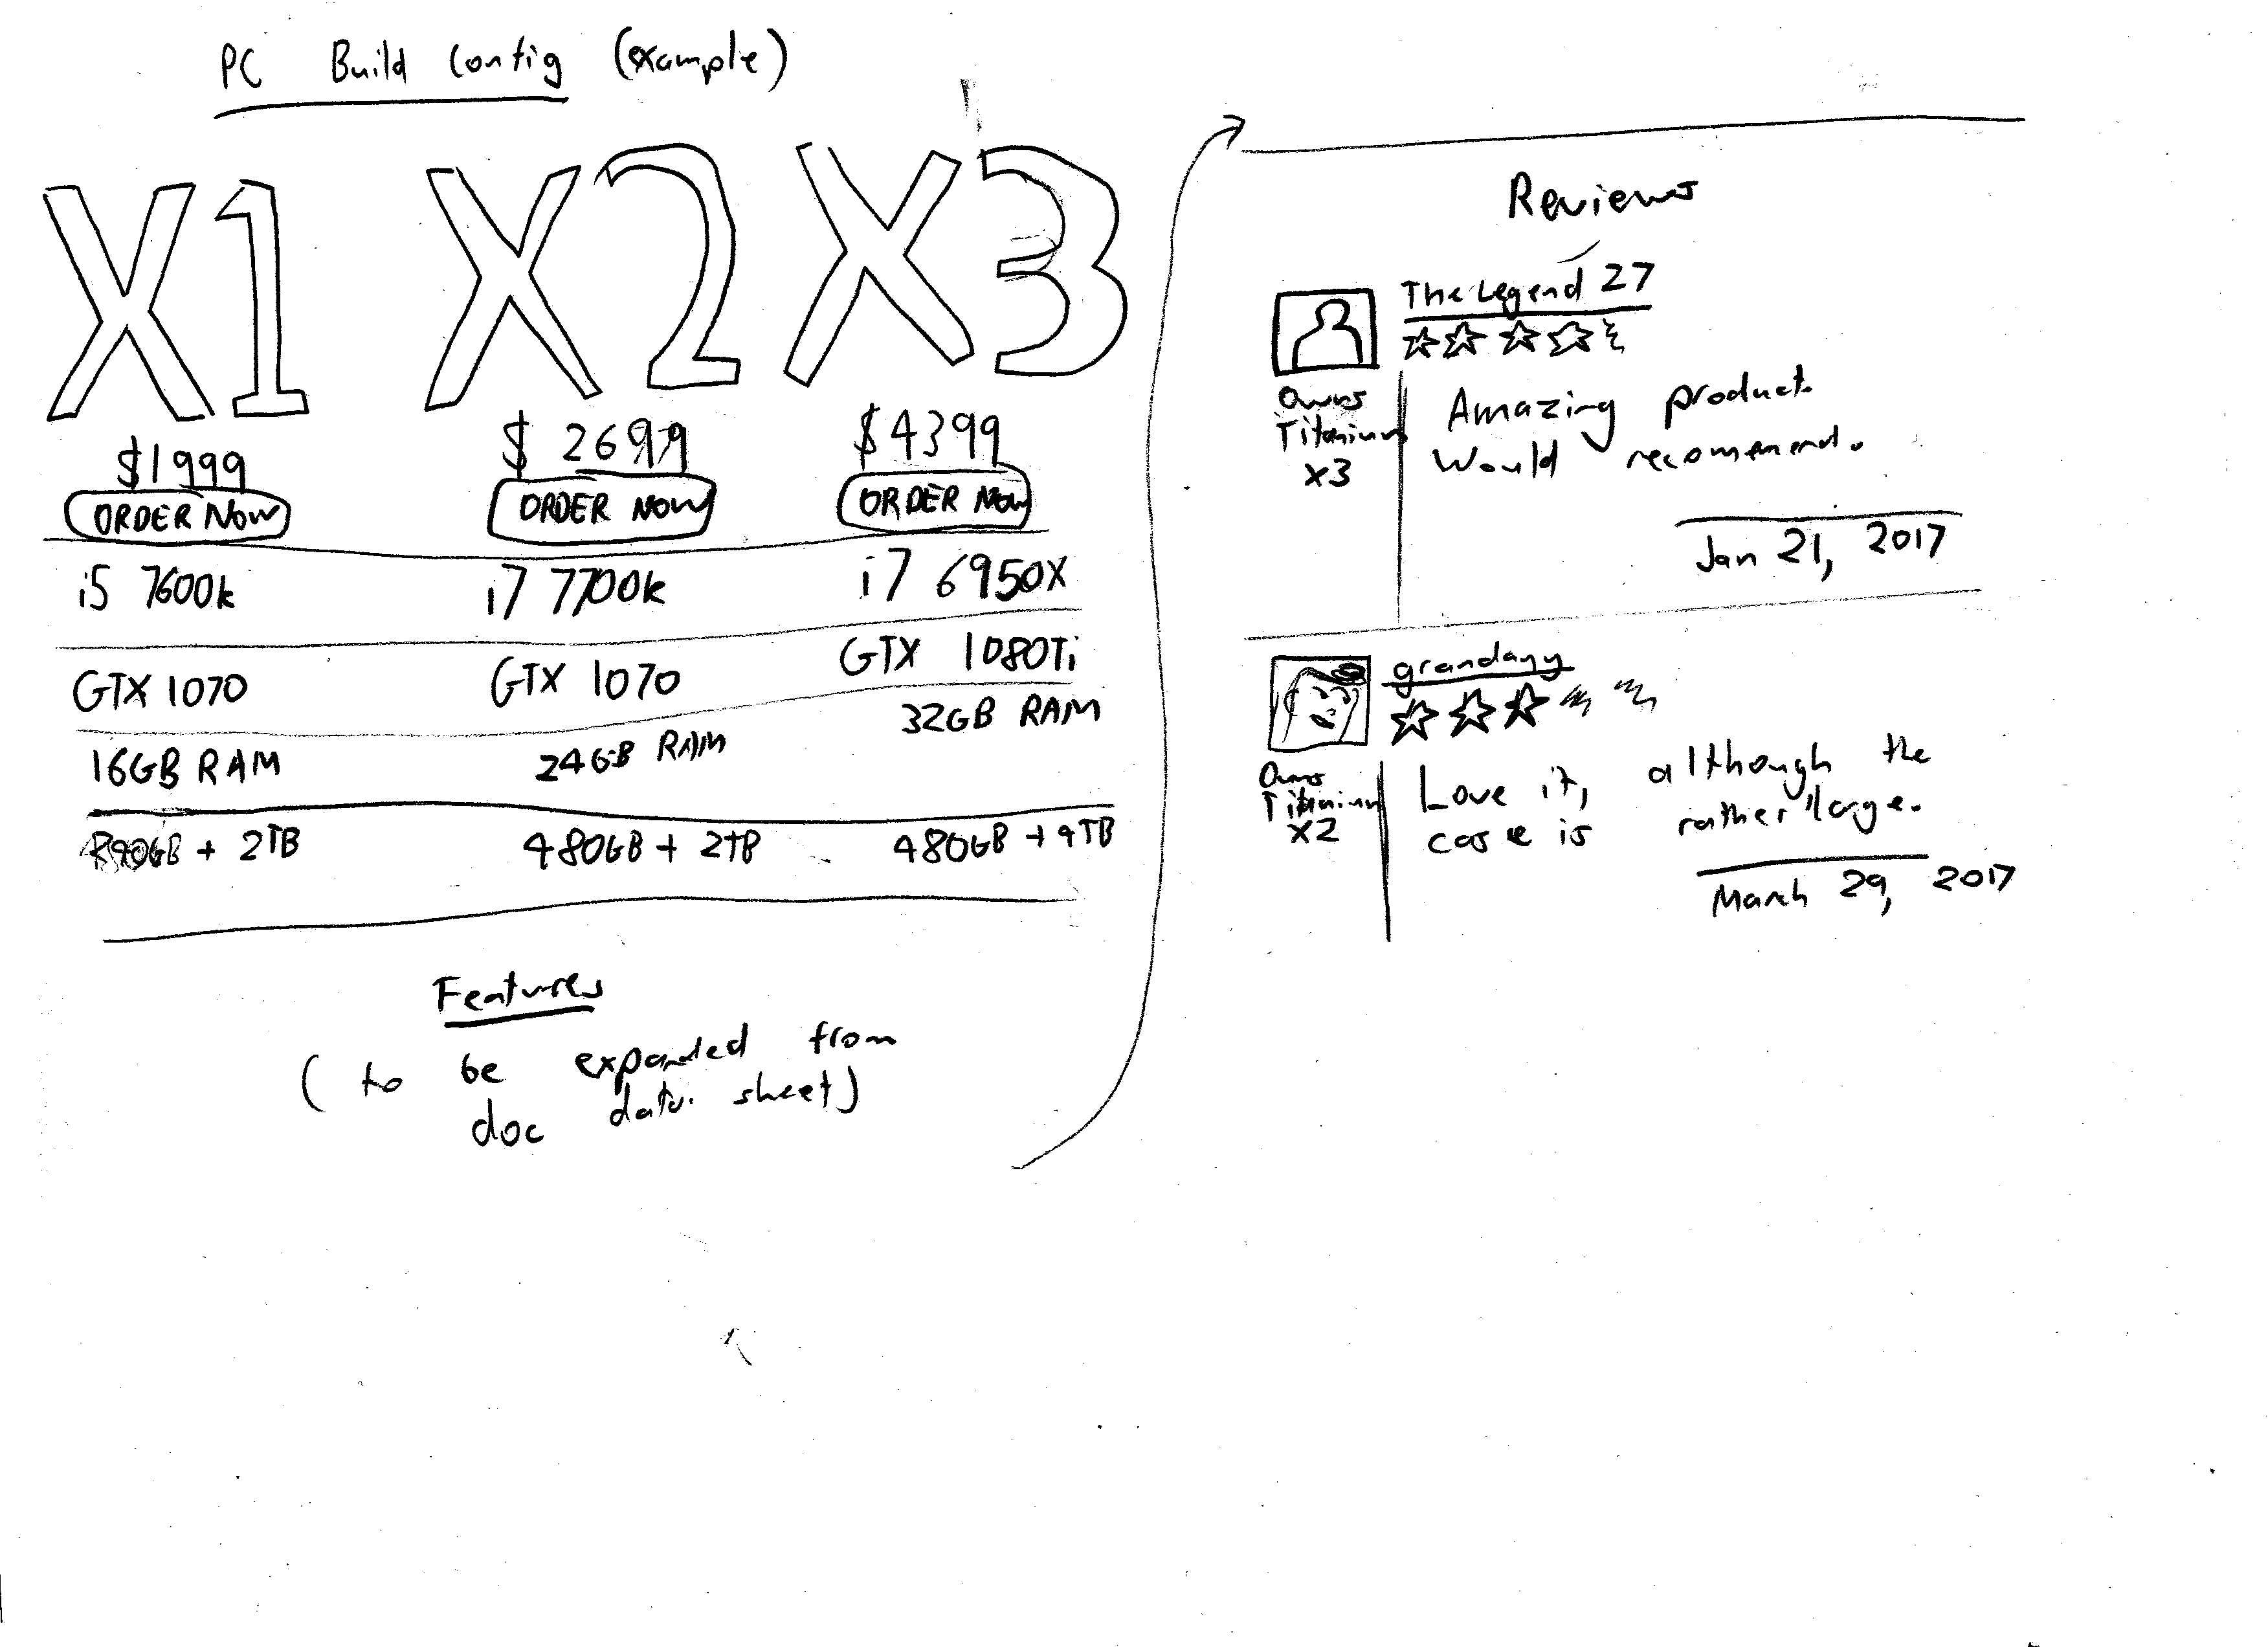 PC Build Config (example)
X1 X2 X3
$1999 $2699 $4399
ORDER NOW ORDER NOW ORDER NOW
i5 7600k i7 7700k i7 6950X
GTX 1070 GTX 1070 GTX 1080Ti
16GB RAM 24GB RAM 32GB RAM
+ 2TB 480GB + 2TB 480GB +
Features
(to be expanded from
doc data sheet)
Reviews
TheLegend 27
Owns
Titanium
X3
Amazing product.
Would recommend.
Jan 21, 2017
grandayy
Owns
Titanium
X2
Love it, although the
case is rather large.
March 29, 2017